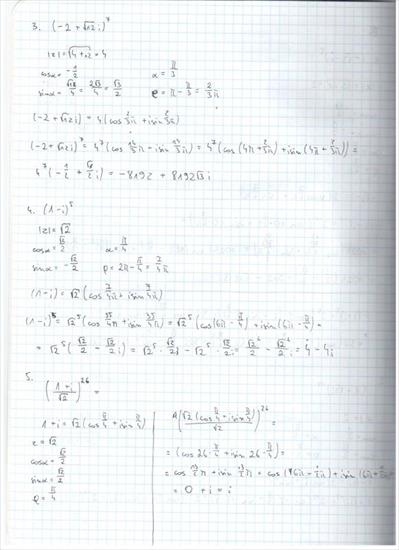 3. (-2 + √12 i)⁷
|z| = √(4+12) = 4
cosα = -1/2
α = π/3
sinα = √12/4 = 2√3/4 = √3/2
φ = π - π/3 = 2/3 π
(-2 + √12 i) = 4(cos 2/3 π + i sin 2/3 π)
(-2 + √12 i)⁷ = 4⁷(cos 14/3 π - i sin 14/3 π) = 4⁷(cos(4π + 2/3 π) + i sin(4π + 2/3 π)) =
4⁷(-1/2 + √3/2 i) = -8192 + 8192√3 i
4. (1-i)⁵
|z| = √2
cosα = √2/2
α = π/4
sinα = -√2/2
φ = 2π - π/4 = 7/4 π
(1-i) = √2(cos 7/4 π + i sin 7/4 π)
(1-i)⁵ = √2⁵(cos 35/4 π + i sin 35/4 π) = √2⁵(cos(6π - π/4) + i sin(6π - π/4) =
= √2⁵(√2/2 - √2/2 i) = √2⁵ · √2/2 - √2⁵ · √2/2 i = √2⁶/2 - √2⁶/2 i = 4 - 4i
5.
((1+i)/√2)²⁶ =
1+i = √2(cos π/4 + i sin π/4)
z = √2
cosα = √2/2
sinα = √2/2
φ = π/4
(√2(cos π/4 + i sin π/4)/√2)²⁶ =
= (cos 26·π/4 + i sin 26·π/4) =
= cos 13/2 π + i sin 13/2 π = cos(6π + 1/2 π) + i sin(6π +
= 0 + i = i